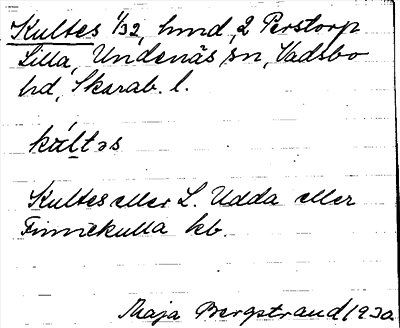 Kultes 1/32, hmd, 2 Perstorp
Lilla, Undenäs sn, Vadsbo
hd, Skarab. l.
Kultes eller L. Udda eller
Finnekulla hb.
Maja Bergstrand 1930